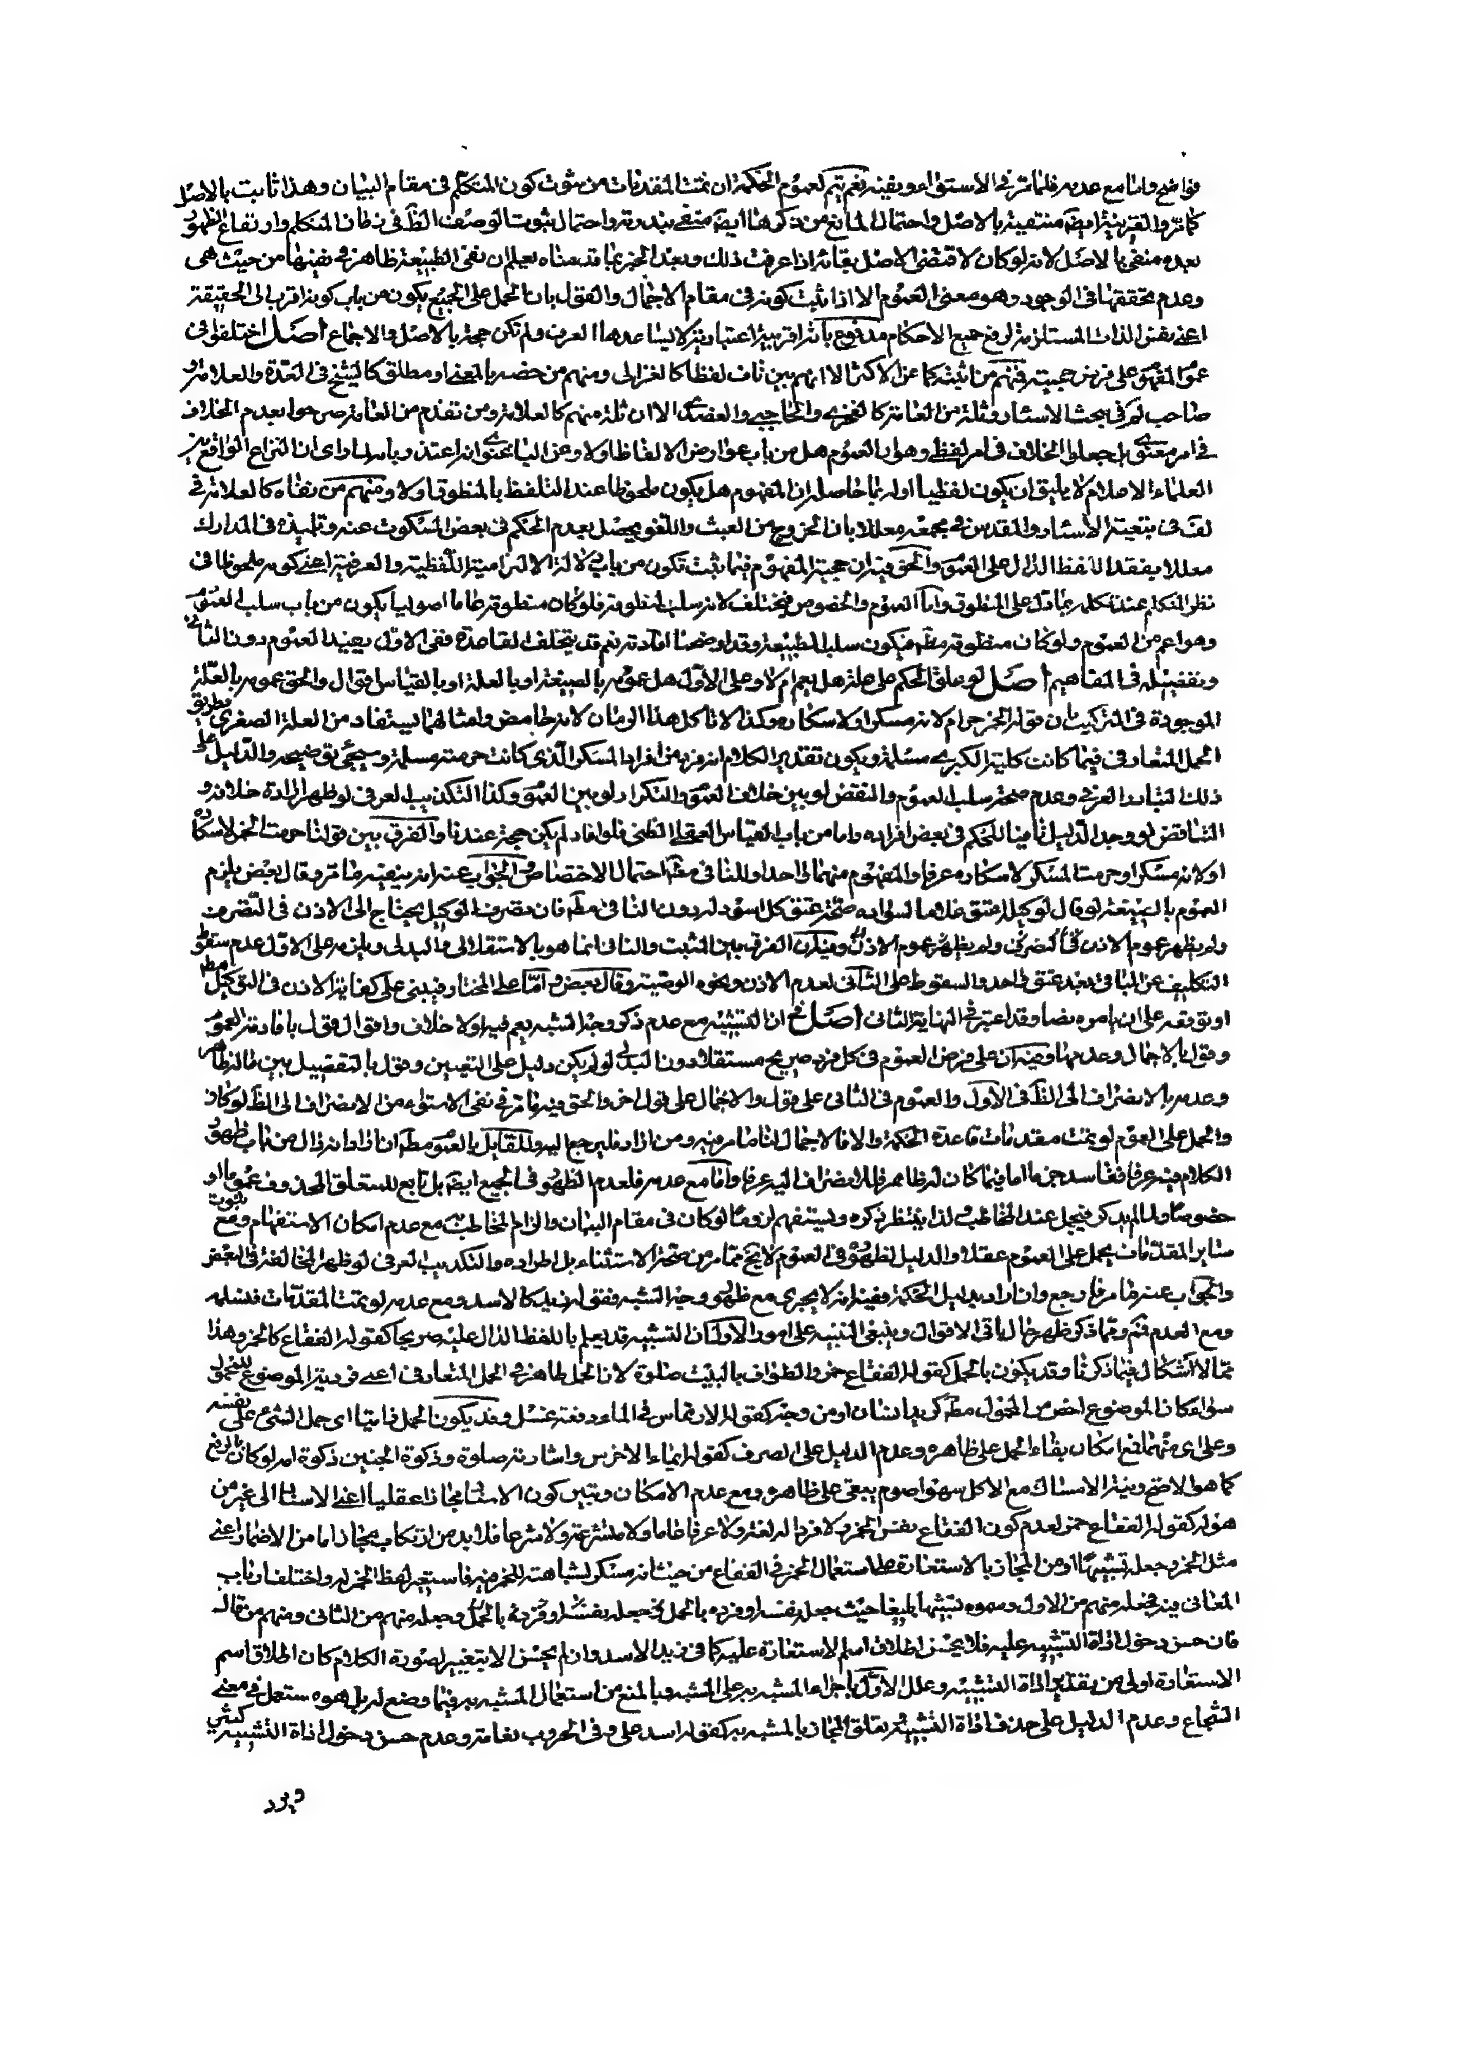 فواضح واما مع عدمه فلما مر في الاستواء ويفيه نعم يتم لعموم الحكمة ان تمت المقدمات من ثبوت كون المتكلم في مقام البيان وهذا ثابت بالاصل
كما مر والقرينة ايضا منتفية بالاصل واحتمال المانع من ذكرها ايضا منفي بندرته واحتمال ثبوت الوصف الظ في زمان المتكلم وارتفاع الظهور
بعده منفي بالاصل لانه لو كان لاقتضى الاصل بقائه اذا عرفت ذلك وبعد الخبر بما قدمناه يعلم ان نفى الطبيعة ظاهر في نفيها من حيث هى
وعدم تحققها في الوجود وهو معنى العموم الا اذا ثبت كونه في مقام الاجمال والقول بان الحمل على الجميع يكون من باب كونه اقرب الى الحقيقة
اعنى نفس الذات المستلزمة لرفع جميع الاحكام مدفوع بانه اقربية اعتبارية لا يساعدها العرف ولم تكن حجة بالاصل والاجماع اصل اختلفوا في
عموم المفهوم على فرض حجيته فمنهم من اثبته كما عن الاكثر الا انهم بين ناف لفظا كالغزالى ومنهم من خصه بالمعنى او مطلق كالشيخ في العدة والعلامة و
صاحب لم في بحث الاسئار وثلة من العامة كالفخري والحاجبي والعضدي الا ان ثلة منهم كالعلامة ومن تقدم من العامة صرحوا بعدم الخلاف
في امر معنوي بل جعلوا الخلاف في امر لفظي وهو ان العموم هل من باب عوارض الالفاظ اولا وعن الباغنوى انه اعتذر وبالمراد اى ان النزاع الواقع بين
العلماء الاعلام لا يليق ان يكون لفظيا اوله بما حاصله ان المفهوم هل يكون ملحوظا عند التلفظ بالمنطوق اولا ومنهم من نفاه كالعلامة في
لف في بتعية الاسئار والمقدس في مجمعه معللا بان الخروج من العبث واللغو يحصل بعدم الحكم في بعض المسكوت عنه وتلميذه في المدارك
معللا بفقد اللفظ الدال على العموم والحق فيه ان حجية المفهوم فيما ثبت تكون من باب دلالة الالتزامية اللفظية والعرفية اعنى كونه ملحوظا في
نظر المتكلم عند تكلمه بما دل على المنطوق واما العموم والخصوص فيختلف لانه سلب لمنطوقه فلو كان منطوقه عاما اصوليا يكون من باب سلب العموم
وهو اعم من العموم ولو كان منطوقه مطلقا فيكون سلبا للطبيعة وقد اوضحنا افادته نعم قد يتخلف القاعدة ففى الاول يفيد العموم دون الثاني
وتفصيله في المفاهيم اصل لو علق الحكم على علة هل يعم ام لا وعلى الاول هل عمومه بالصيغة او بالعلة او بالقياس اقوال والحق عمومه بالعلة
الموجودة في التركيب فان قوله الخمر حرام لانه مسكر او لاسكاره وكذا لا تاكل هذا الرمان لانه حامض وامثالهما يستفاد من العلة الصغرى بطريق
الحمل المتعارف فيما كانت كلية الكبرى مسلمة ويكون تقدير الكلام انه فرد من افراد المسكر الذى كانت حرمته مسلمة وسيجئ توضيحه والدليل على
ذلك التبادر العرفي وعدم صحة سلب العموم والنقض لو بين خلاف العموم والتكرار لو بين العموم وكذا التكذيب العرفي لو ظهر ارادة خلافه و
التناقض لو وجد الدليل نافيا للحكم في بعض افراده واما من باب القياس العقلى الظني فلو افاد لم يكن حجة عندنا والفرق بين قولنا حرمت الخمر لاسكاره
او لانه مسكر او حرمت المسكر لاسكاره عرفا والمفهوم منهما واحد وللنافي مطلقا احتمال الاختصاص والجواب عنه انه ينفيه ما مر وقال بعض يلزم
العموم بالصيغة لو قال لوكيله اعتق غلاما لسواده صحة عتق كل اسود له دون النافي مطلقا فان تصرف الوكيل يحتاج الى الاذن في التصرف
ولم يظهر عموم الاذن في التصرف ولم يظهر عموم الاذن وفيه ان الفرق بين المثبت والنافي انما هو بالاستقلالى والبدلى ويلزمه على الاول عدم سقوط
التكليف عن الباقي بعد عتق واحد والسقوط على الثاني لعدم الاذن ونحوه الوصية وقال بعض واما على المختار فيبنى على كفاية الاذن في التوكيل
او توقفه على ان يامره نصا وقد اعتبر في النهاية الثاني اصل في ان التشبيه مع عدم ذكر وجه الشبه يعم فيه اولا خلاف واقوال فقول بافادته العموم
وقول بالاجمال وعدمها وفيه ان على فرض العموم في كل فرد صريح مستقلا دون البدلى لو لم يكن دليل على التعيين وقول بالتفصيل بين ما له ظاهر
وعدمه بالانصراف الى الظ في الاول والعموم في الثاني على قول والاجمال على قول اخر والحق فيه ما مر في نفى الاستواء من الانصراف الى الظ لو كان
والحمل على العموم لو تمت مقدمات قاعدة الحكمة والا فالاجمال لنا ما مر فيه ومن اراد فليرجع اليه وللقائل بالعموم مطلقا ان اراد انه زال من باب ظهور
الكلام فيه عرفا ففاسد جزما اما فيما كان له ظاهر فللانصراف اليه عرفا واما مع عدمه فلعدم الظهور في الجميع ايضا بل تابع للمتعلق المحذوف عموما او
خصوصا ولما لم يذكر فيجمل عند المخاطب لذا ينتظر ذكره ويستفهم لزوما لو كان في مقام البيان والزام المخاطب مع عدم امكان الاستفهام ومع ثبوت
سائر المقدمات يحمل على العموم عقلا والدليل لظهور في العموم لا يخ مما مر من صحة الاستثناء بل اطراده والتكذيب العرفي لو ظهر المخالفة في البعض
والجواب عنه ما مر فارجع وان اراد بدليل الحكمة ففيه انه لا يجرى مع ظهور وجه الشبه فقوله زيد كالاسد ومع عدمه لو تمت المقدمات فنسلمه
ومع العدم فمم ومما ذكر ظهر حال باقي الاقوال وينبغي التنبيه على امور الاول ان التشبيه قد يعلم باللفظ الدال عليه صريحا كقوله الفقاع كالخمر وهذا
مما لا اشكال فيما ذكرنا وقد يكون بالحمل كقوله الفقاع خمر والطواف بالبيت صلوة لان الحمل ظاهر في الحمل المتعارف اعنى فردية الموضوع للمحمول
سواء كان الموضوع اخص من المحمول مطلقا كزيد انسان او من وجه كقوله الارتماس في الماء دفعة غسل وقد يكون الحمل ذاتيا اى حمل الشئ على نفسه
وعلى اى منهما فمع امكان بقاء الحمل على ظاهره وعدم الدليل على الصرف كقوله ايماء الاخرس واشارته صلوة وذكوة الجنين ذكوة امه لو كان بالرفع
كما هو الاصح ونية الامساك مع الاكل سهوا صوم يبقى على ظاهره ومع عدم الامكان وتبين كون الاسناد مجازا عقليا اعنى الاسناد الى غير من
هو له كقوله الفقاع خمر لعدم كون الفقاع نفس الخمر ولا فردا له لغة ولا عرفا عاما ولا متشرعة ولا شرعا فلا بد من ارتكاب مجاز اما من الاضمار اعنى
مثل الخمر وجعله تشبيها او من المجاز بالاستعارة على استعمال الخمر في الفقاع من حيث انه مسكر لشباهته للخمر فيه فاستعير لفظ الخمر له واختلف ارباب
المعانى فيه فجعله منهم من الاول وسموه تشبيها بليغا حيث جعل نفسه او فرده بالحمل وجعله منهم من الثاني ومنهم من قال
فان حسن دخول اداة التشبيه عليه فلا يحسن اطلاق اسم الاستعارة عليه كما في زيد الاسد وان لم يحسن الا بتغيير لصورة الكلام كان اطلاق اسم
الاستعارة اولى من تقدير اداة التشبيه وعلل الاول باجراء المشبه به على المشبه وبالمنع من استعمال المشبه به فيما وضع له بل هو مستعمل في معنى
الشجاع وعدم الدليل على حذف اداة التشبيه وتعلق الجار بالمشبه به كقوله اسد على وفى الحروب نعامة وعدم حسن دخول اداة التشبيه كثير